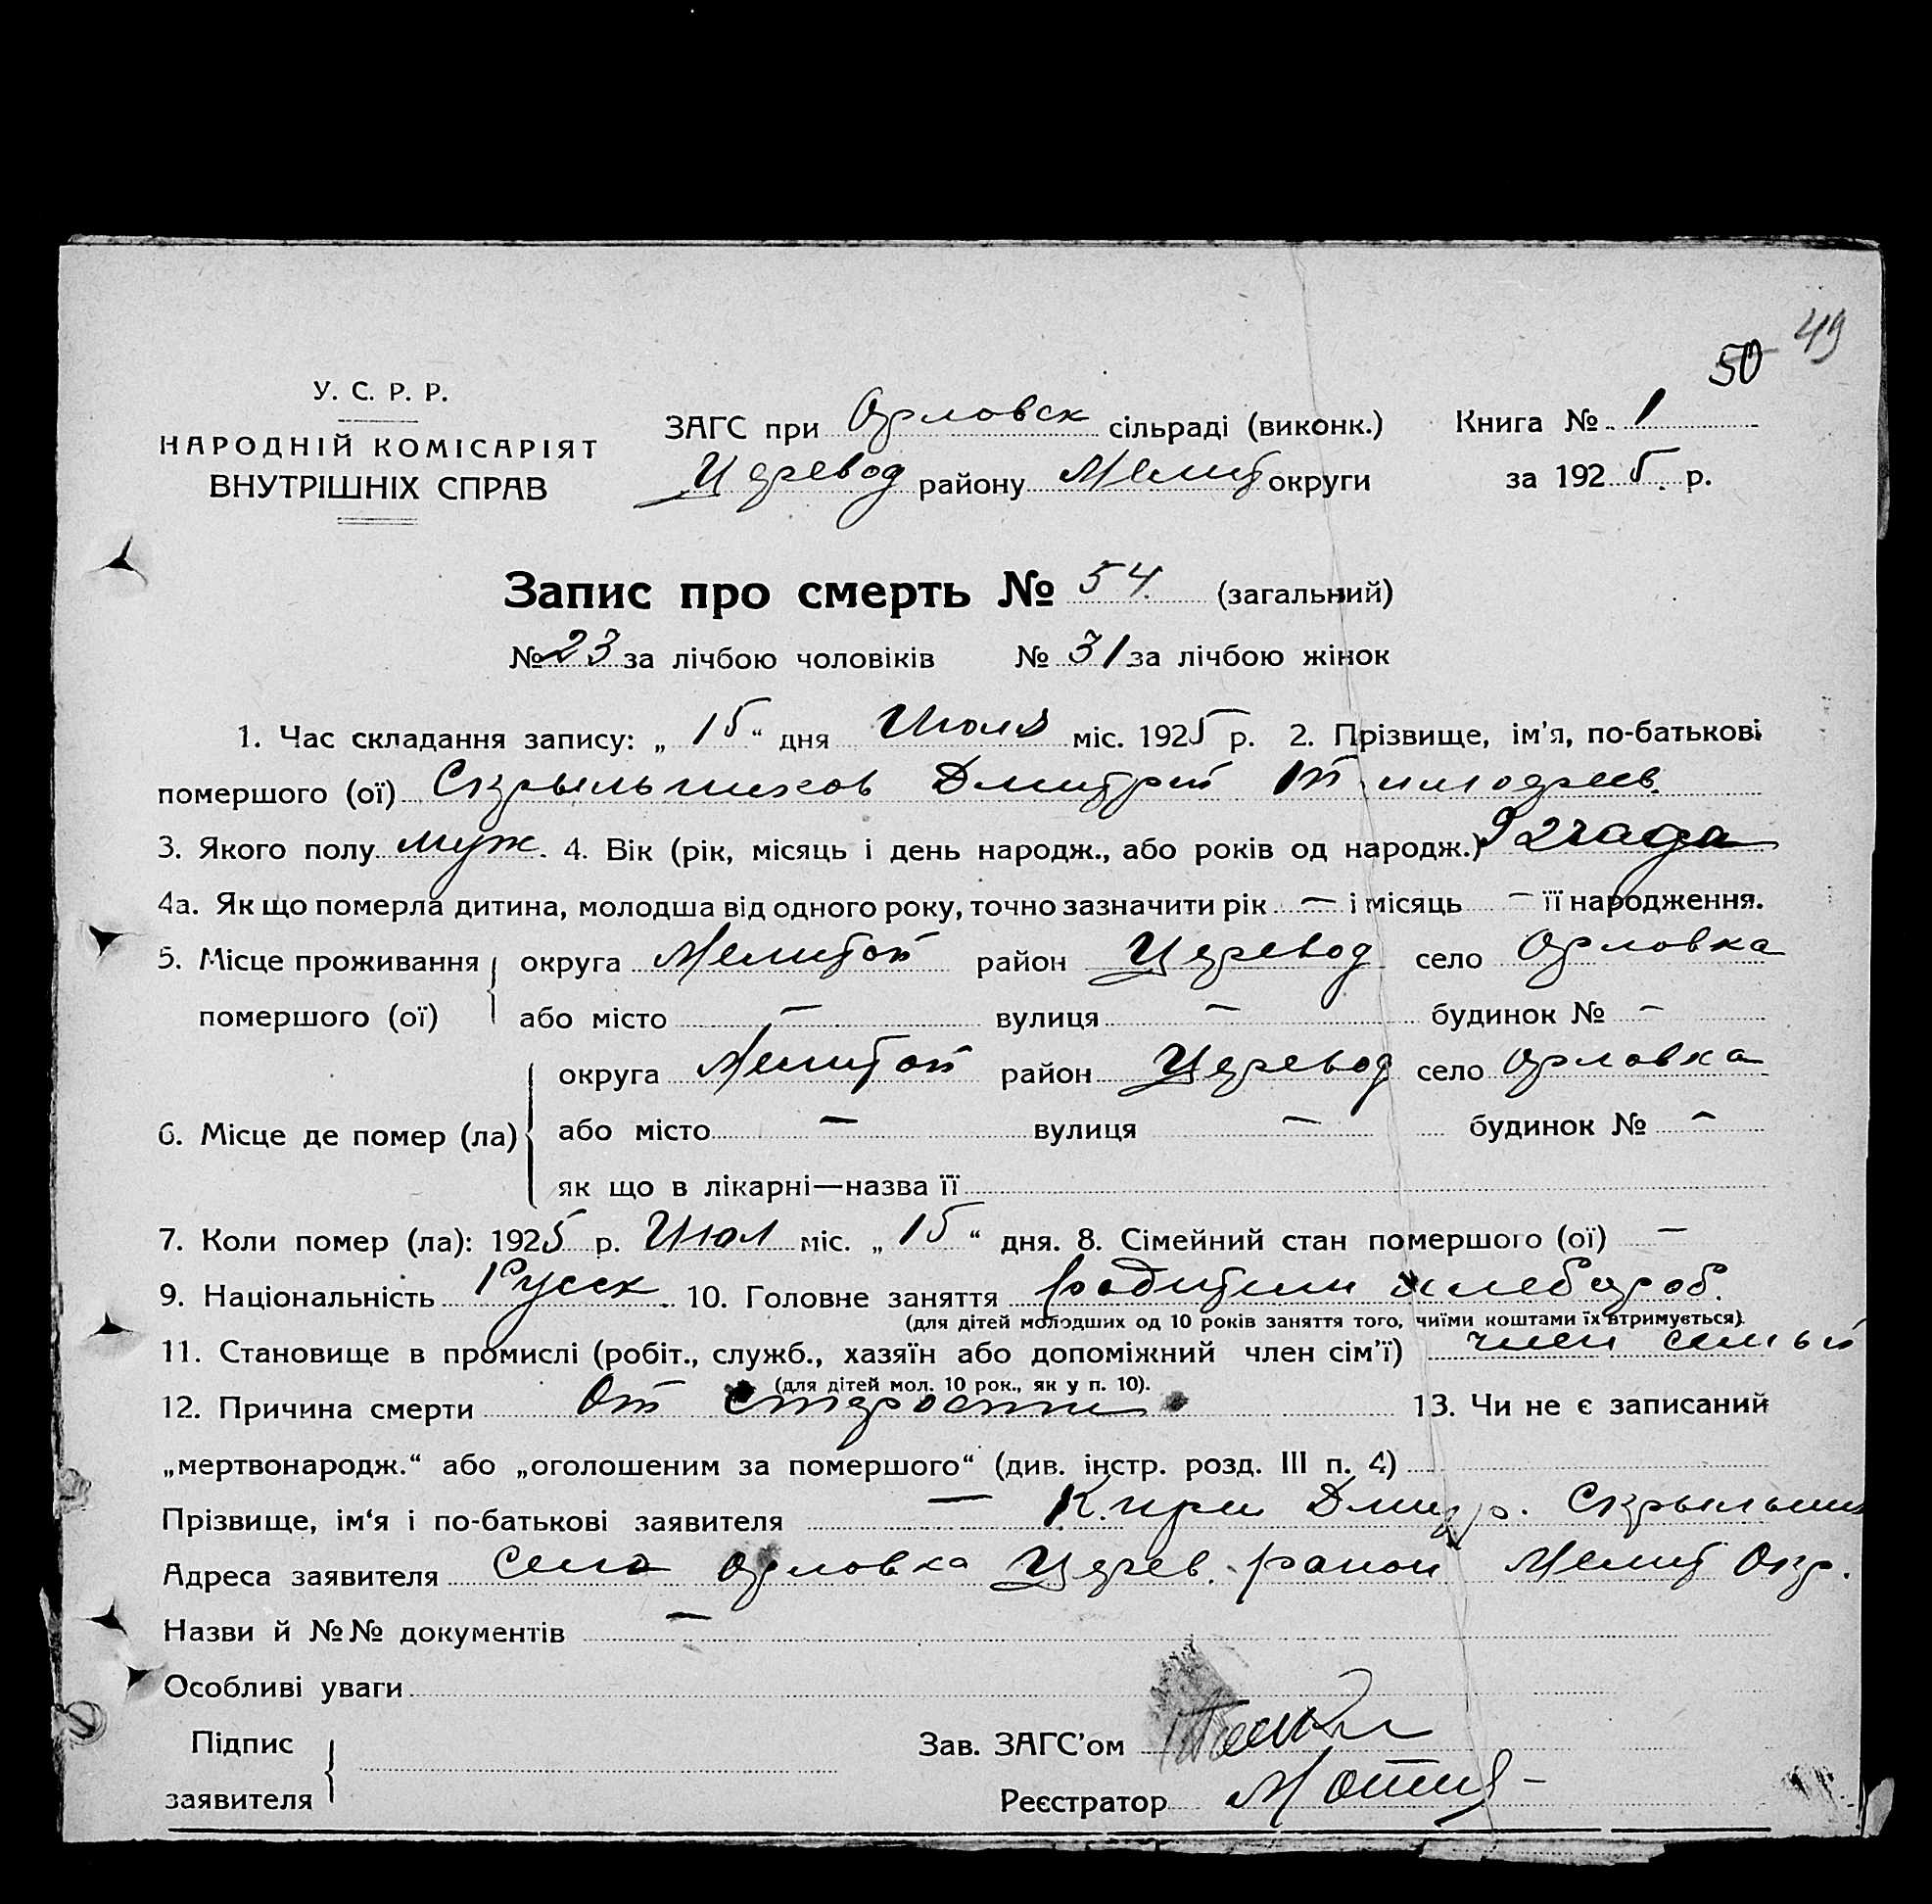 49
50
У. С. Р. Р.
НАРОДНІЙ КОМІСАРІЯТ
ВНУТРІШНІХ СПРАВ
ЗАГС при Орловск сільраді (виконк.) Книга № 1
Церевод району Мелит округи за 1925 р.
Запис про смерть № 54. (загальний)
№ 23 за лічбою чоловіків № 31 за лічбою жінок
1. Час складання запису: „15“ дня Июля міс. 1925 р. 2. Прізвище, ім'я, по-батькові
помершого (ої) Скрыльников Дмитрий Тимофеев.
3. Якого полу муж. 4. Вік (рік, місяць і день народж., або років од народж.) 92 года
4а. Як що померла дитина, молодша від одного року, точно зазначити рік — і місяць — її народження.
5. Місце проживання округа Мелитоп район Церевод село Орловка
помершого (ої) або місто — вулиця — будинок № —
округа Мелитоп район Церевод село Орловка
6. Місце де помер (ла) або місто — вулиця — будинок № —
як що в лікарні—назва її
7. Коли помер (ла): 1925 р. Июл міс. „15“ дня. 8. Сімейний стан помершого (ої) —
9. Національність Русск. 10. Головне заняття хлебороб.
(для дітей молодших од 10 років заняття того, чиїми коштами їх втримується).
11. Становище в промислі (робіт., служб., хазяїн або допоміжний член сім'ї) член семьи
(для дітей мол. 10 рок., як у п. 10).
12. Причина смерти От старости 13. Чи не є записаний
„мертвонародж.“ або „оголошеним за помершого“ (див. інстр. розд. III п. 4)
Прізвище, ім'я і по-батькові заявителя — Дмитр. Скрыльник
Адреса заявителя Село Орловка Церев. район Мелит Окр.
Назви й №№ документів —
Особливі уваги
Підпис
заявителя
Зав. ЗАГС'ом
Реєстратор